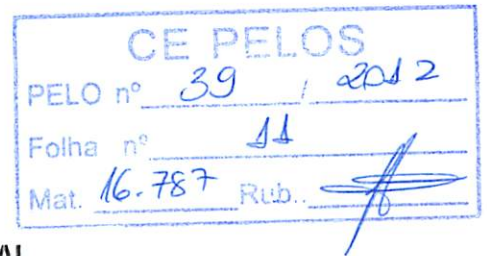 CE PELOS
PELO nº 39 / 2012
Folha nº 11
Mat. 16.787 Rub.